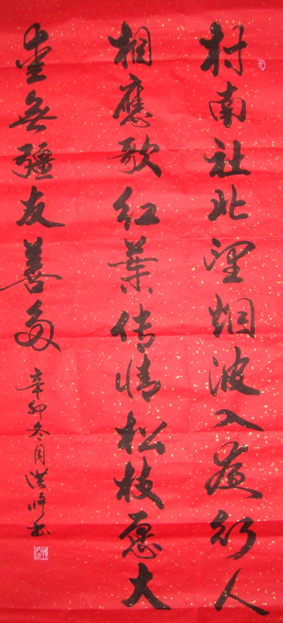 村南社北望烟波入夜行人
相應歌红葉传情松枝愿大
爱無疆友善多
辛卯冬月书